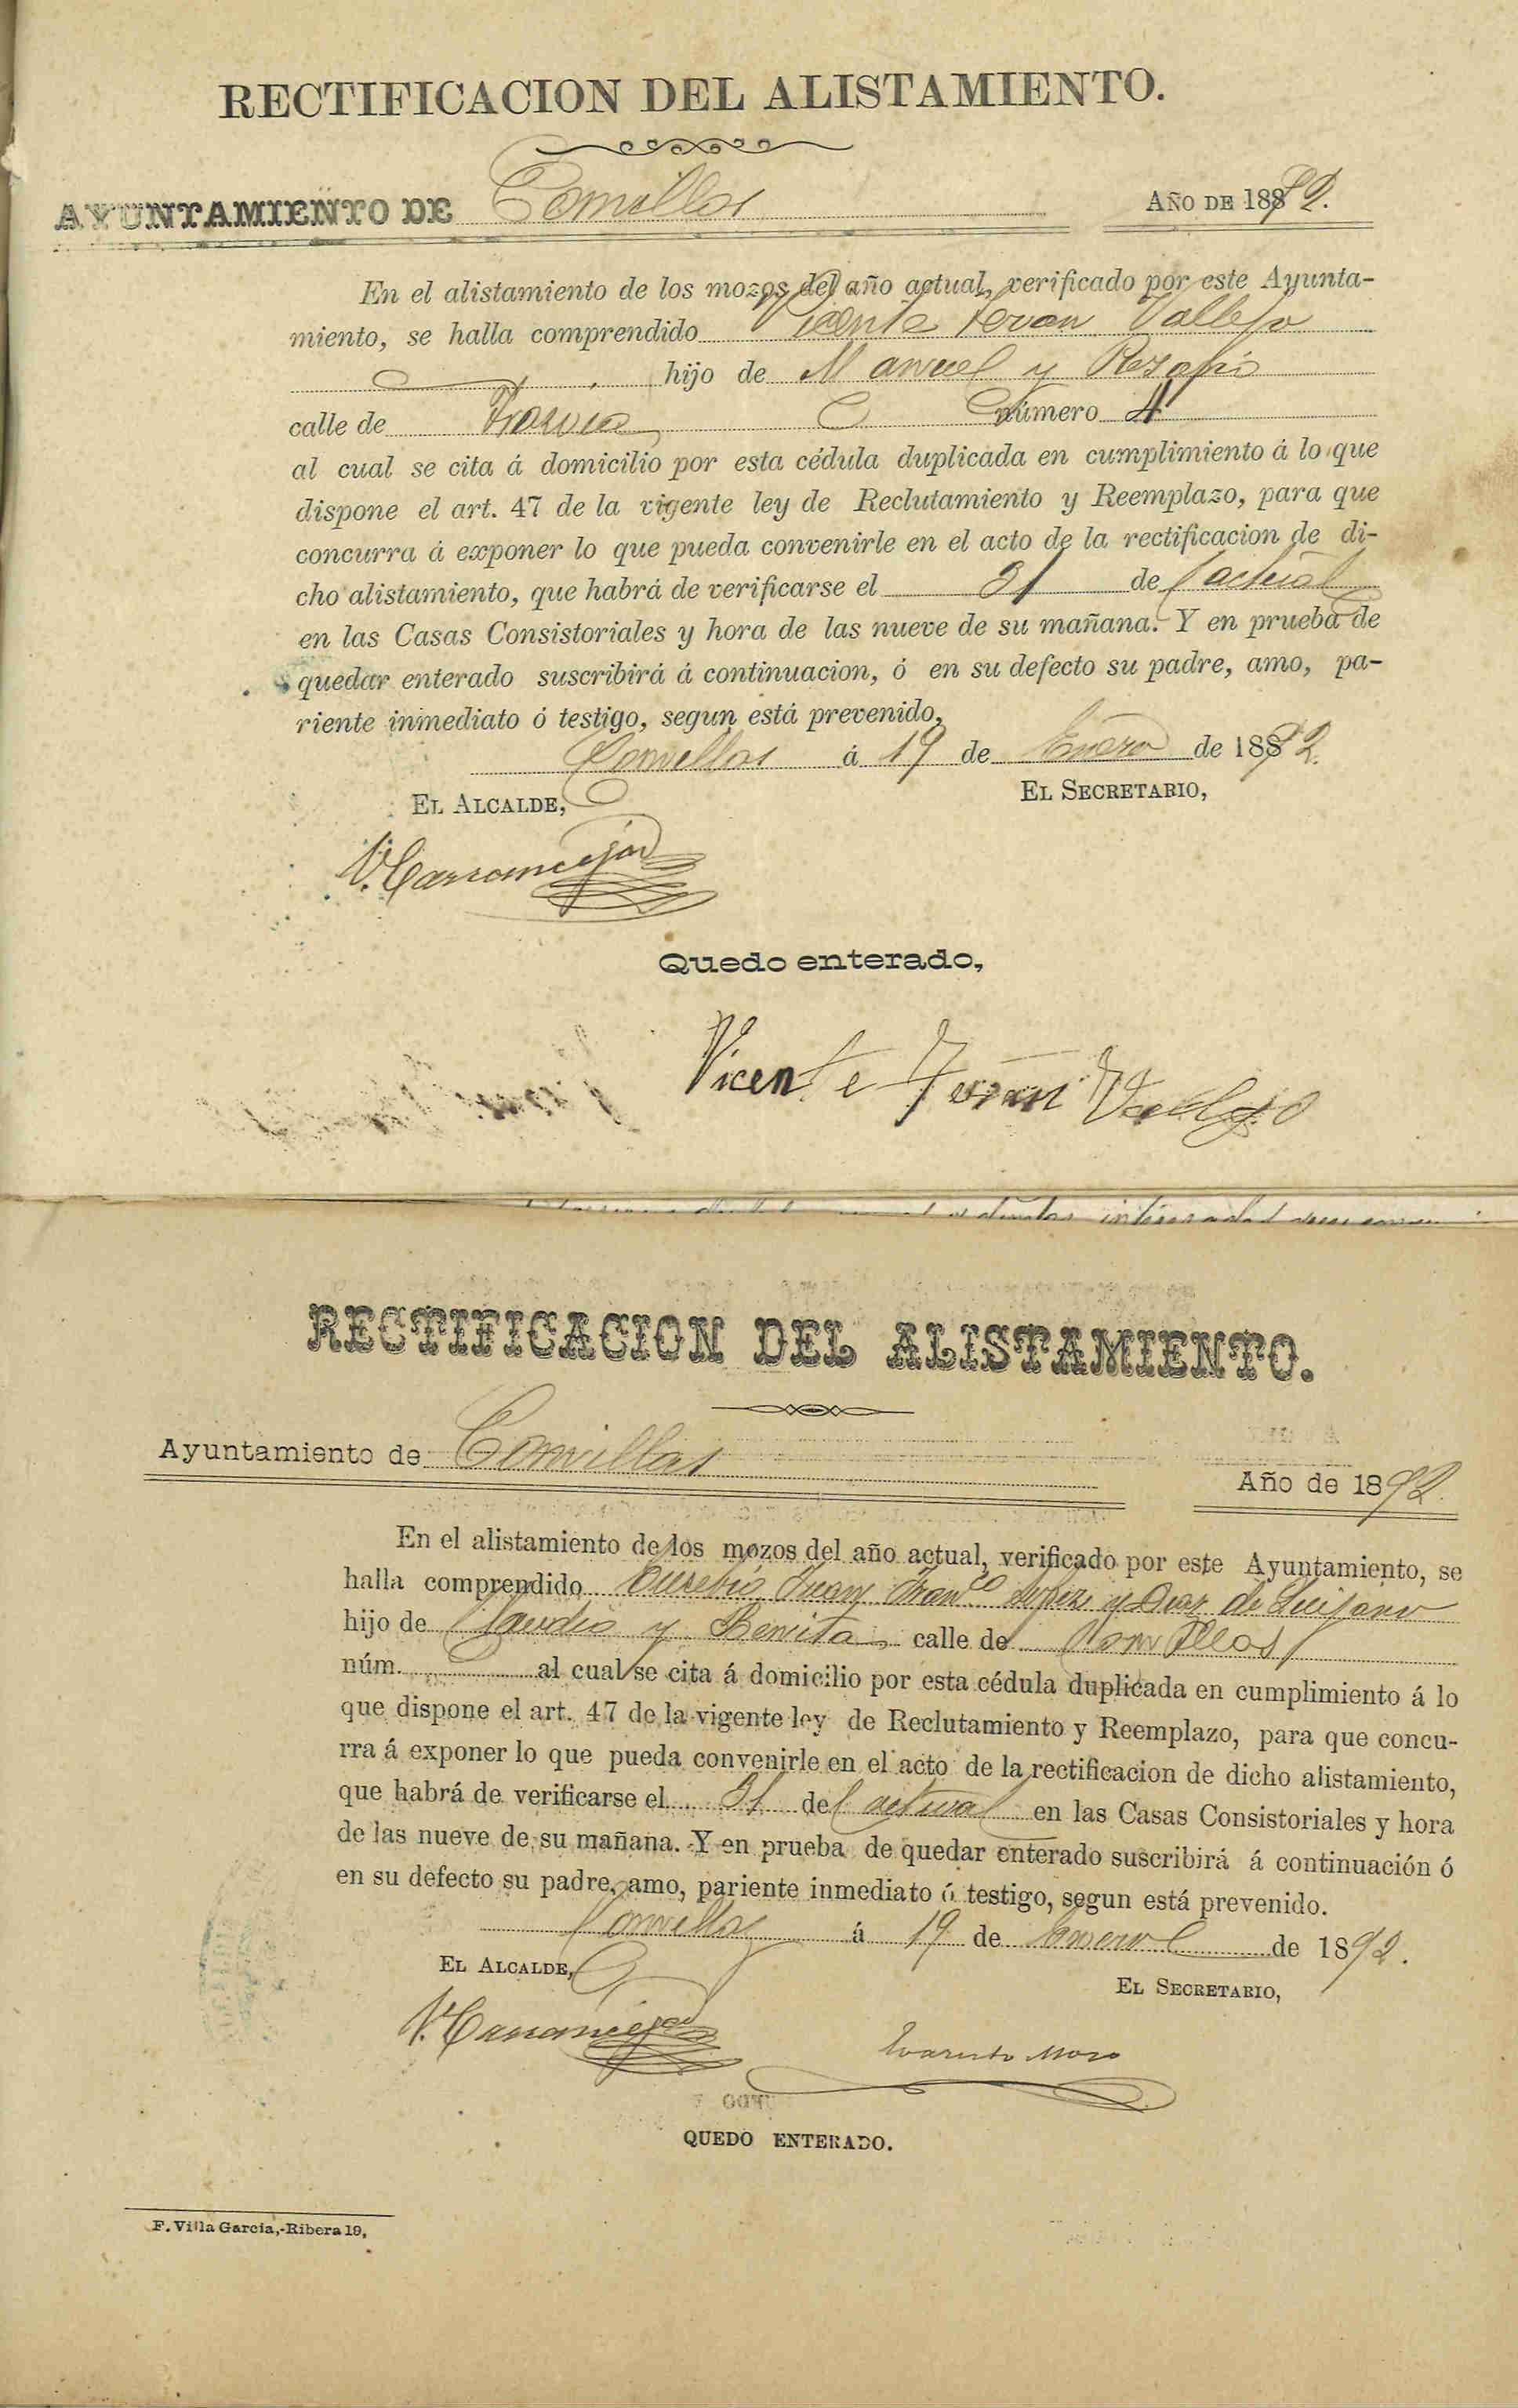 RECTIFICACION DEL ALISTAMIENTO.
AYUNTAMIENTO DE Comillas AÑO DE 1892.
En el alistamiento de los mozos del año actual, verificado por este Ayunta-
miento, se halla comprendido Vicente Teran Vallejo
hijo de Manuel y
calle de número 4
al cual se cita á domicilio por esta cédula duplicada en cumplimiento á lo que
dispone el art. 47 de la vigente ley de Reclutamiento y Reemplazo, para que
concurra á exponer lo que pueda convenirle en el acto de la rectificacion de di-
cho alistamiento, que habrá de verificarse el 31 del actual
en las Casas Consistoriales y hora de las nueve de su mañana. Y en prueba de
quedar enterado suscribirá á continuacion, ó en su defecto su padre, amo, pa-
riente inmediato ó testigo, segun está prevenido,
Comillas á 19 de Enero de 1892.
EL ALCALDE, EL SECRETARIO,
Quedo enterado,
Vicente Terán Vallejo
RECTIFICACION DEL ALISTAMIENTO.
Ayuntamiento de Comillas
Año de 1892.
En el alistamiento de los mozos del año actual, verificado por este Ayuntamiento, se
halla comprendido Eusebio Juan Franco Lopez y Diaz de Quijano
hijo de Claudio y Benita calle de Comillas
núm. al cual se cita á domicilio por esta cédula duplicada en cumplimiento á lo
que dispone el art. 47 de la vigente ley de Reclutamiento y Reemplazo, para que concu-
rra á exponer lo que pueda convenirle en el acto de la rectificacion de dicho alistamiento,
que habrá de verificarse el 31 del actual en las Casas Consistoriales y hora
de las nueve de su mañana. Y en prueba de quedar enterado suscribirá á continuación ó
en su defecto su padre, amo, pariente inmediato ó testigo, segun está prevenido.
Comillas á 19 de Enero de 1892.
EL ALCALDE,
EL SECRETARIO,
Evaristo Mozo
QUEDO ENTERADO.
F. Villa Garcia,-Ribera 19,